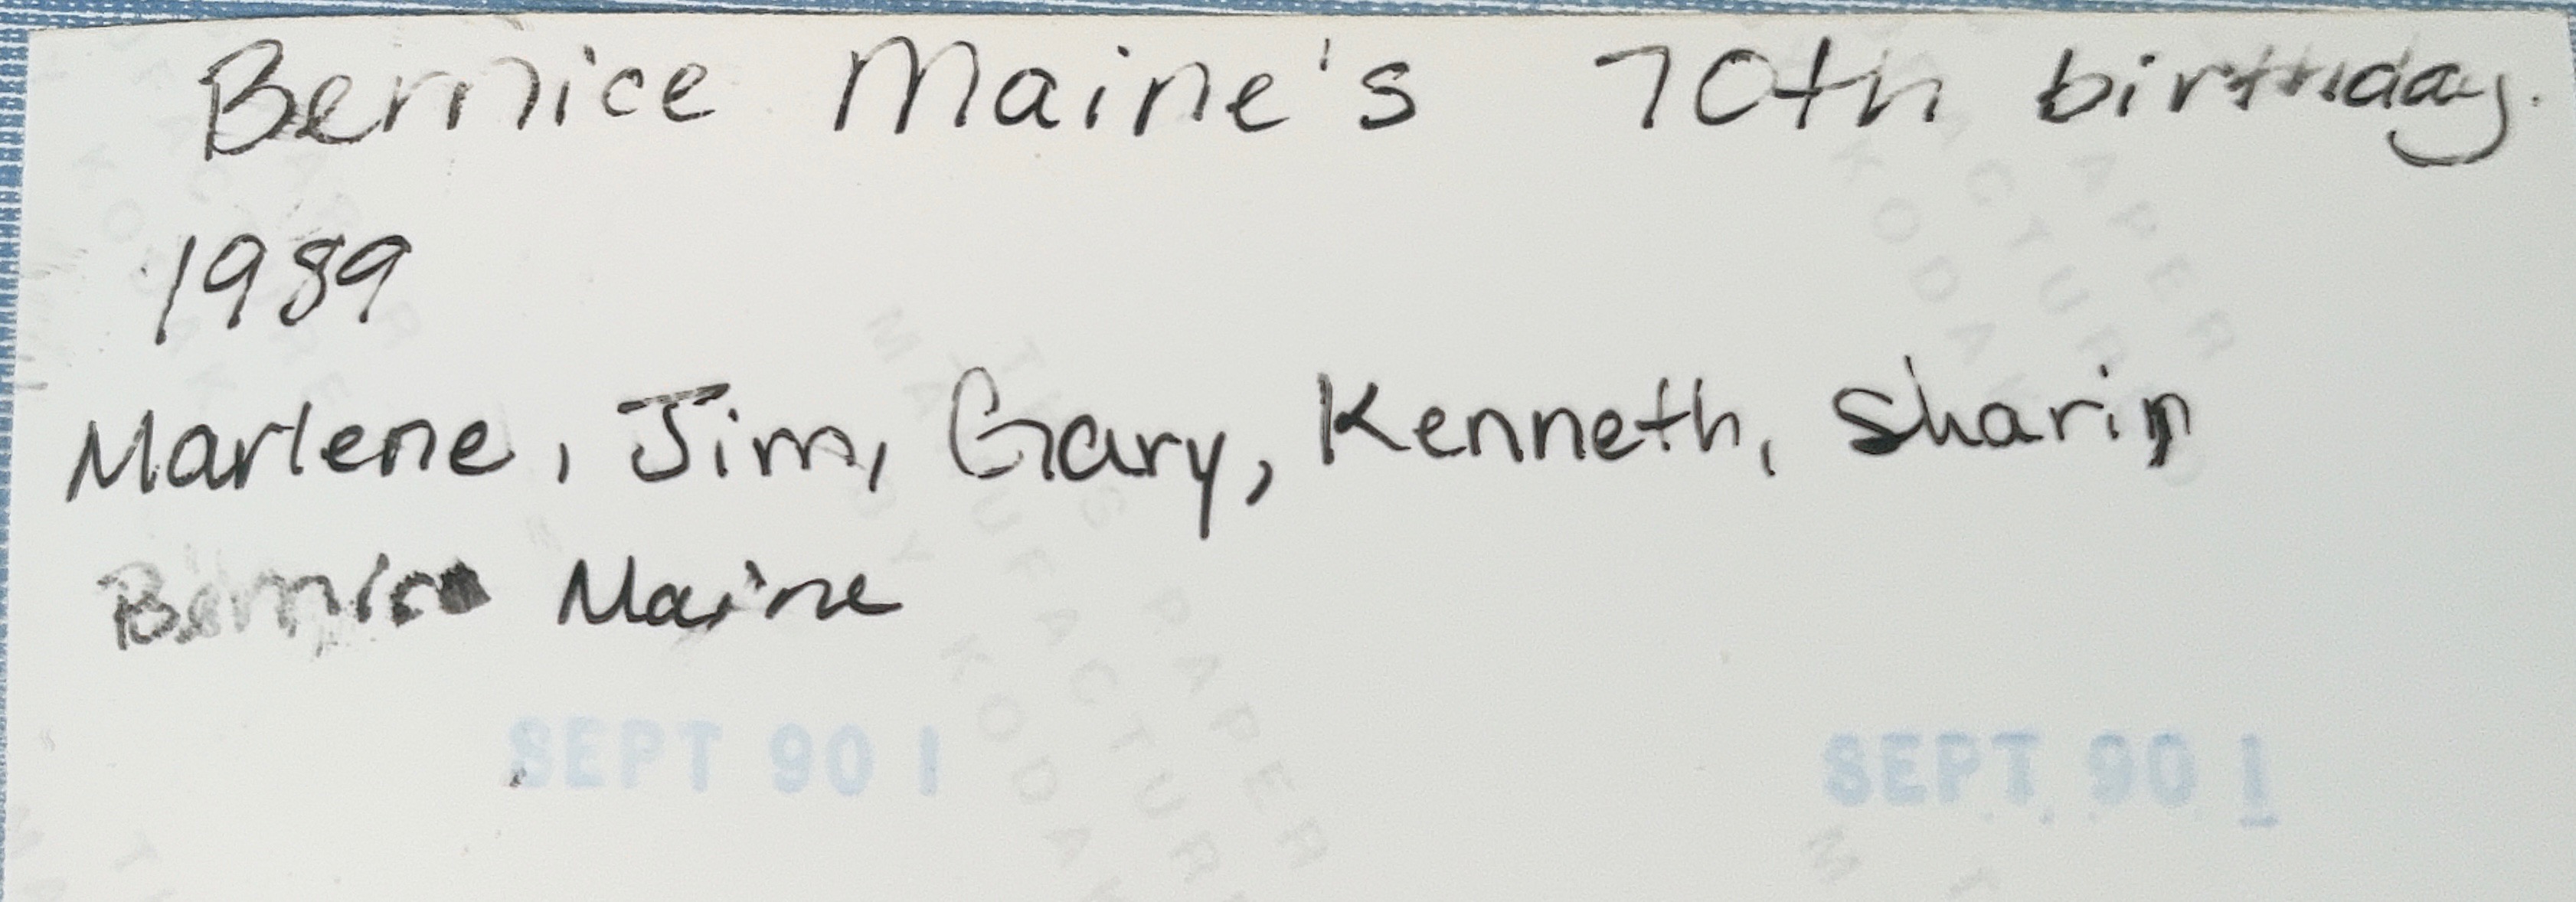 Bernice Maine's 70th birthday.
1989
Marlene, Jim, Gary, Kenneth, Sharin
Bernice Maine
SEPT 90 1 SEPT 90 1
THIS PAPER
MANUFACTURED
BY KODAK